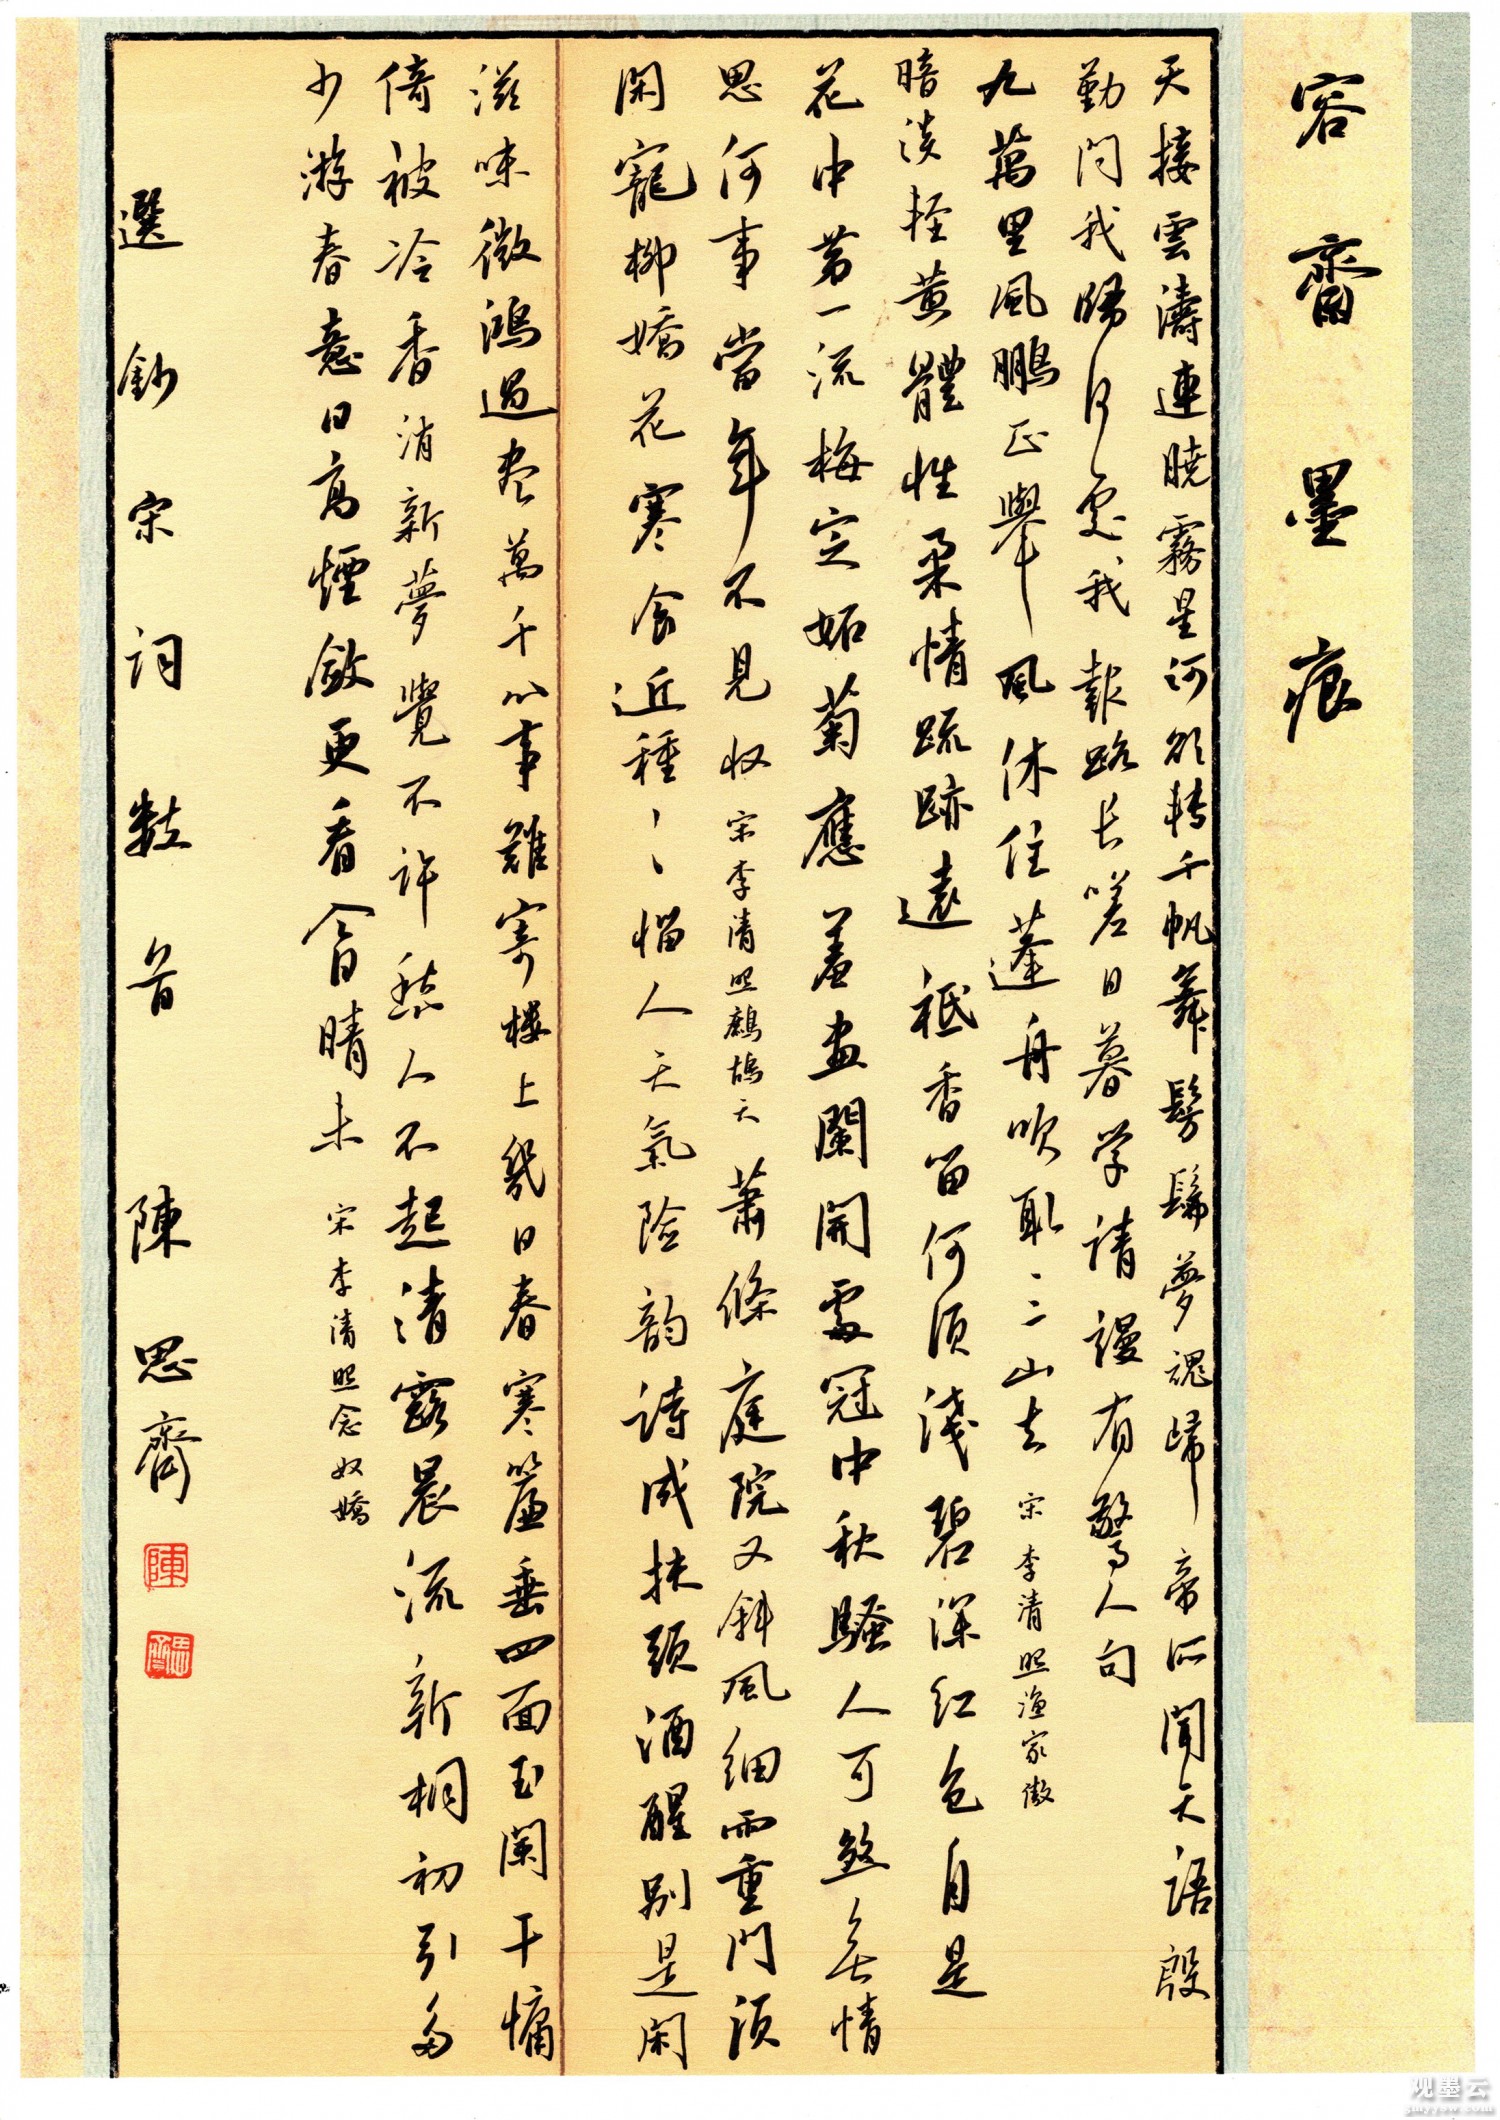 容齋墨痕
天接雲濤連曉霧星河欲轉千帆舞髣髴夢魂歸帝所聞天語殷
勤問我歸何處我報路長嗟日暮学請謾有驚人句
九萬里風鵬正舉風休住蓬舟吹取三山去 宋李清照漁家傲
暗淡輕黄體性柔情疏跡遠祗香留何須淺碧深红色自是
花中第一流梅定妬菊應羞畫闌開處冠中秋騷人可煞無情
思何事當年不見收 宋李清照鷓鴣天 蕭條庭院又斜風細雨重門須
閑寵柳嬌花寒食近種〻惱人天氣险韵詩成扶頭酒醒别是閑
滋味徵鴻過盡萬千心事難寄樓上幾日春寒簾垂四面玉闌干慵
倚被冷香消新夢覺不許愁人不起清露晨流新桐初引多
少游春意日高煙斂更看今日晴未 宋李清照念奴嬌
選鈔宋词數首 陳思齊
陳
思齊
观墨云